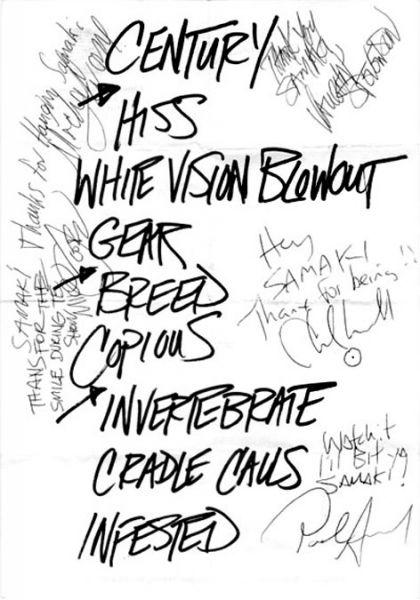 CENTURY
HISS
WHITE VISION BLOWOUT
GEAR
BREED
COPIOUS
INVERTEBRATE
CRADLE CALLS
INFESTED
Thank you
SAMAKI
Samaki Thanks for
SAMAKI
THANS FOR THE
SMILE DURING THE
SHOW
Hey
SAMAKI
Thanx for being!!
Watch it
I'll BIT YA
SAMAKI!